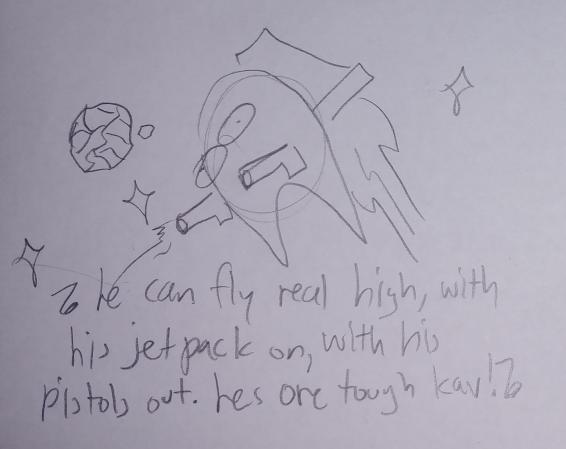 he can fly real high, with
his jetpack on, with his
pistols out. hes one tough kav!